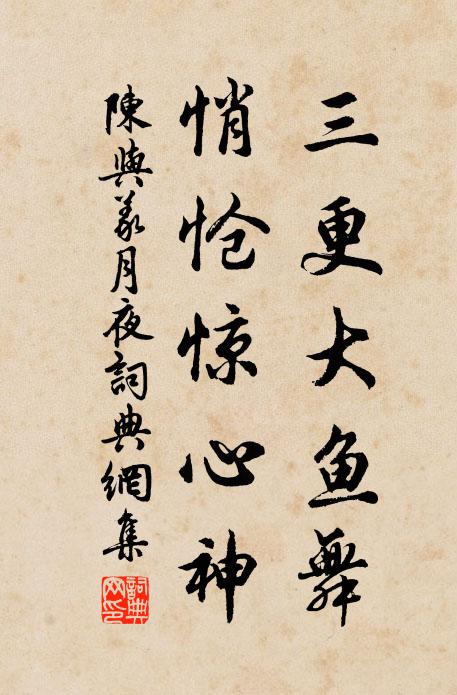 三更大鱼舞
悄怆惊心神
陳與義月夜詞典網集
詞典网印